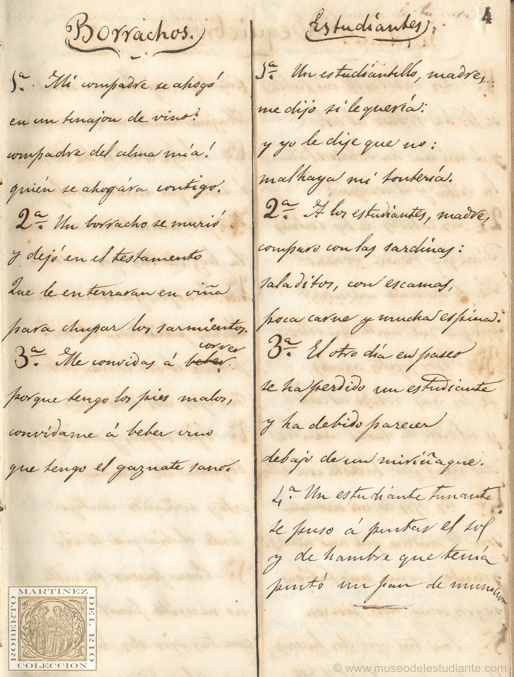 4
Borrachos.
1ª. Mi compadre se ahogó
en un tinajon de vino:
compadre del alma mía!
quién se ahogára contigo.
2ª. Un borracho se murió
y dejó en el testamento
Que le enterraran en viña
para chupar los sarmientos.
3ª. Me convidas á beber correr.
porque tengo los pies malos,
convidame á beber vino
que tengo el gaznate sano.
Estudiantes.
1ª. Un estudiantillo, madre,
me dijo si le quería:
y yo le dije que no:
malhaya mi tontería.
2ª. A los estudiantes, madre,
comparo con las sardinas:
saladitos, con escamas,
poca carne y mucha espina.
3ª. El otro día en paseo
se ha perdido un estudiante
y ha debido parecer
debajo de un miriñaque.
4ª Un estudiante tunante
se puso á pintar el sol
y de hambre que tenía
pintó un pan de
ROBERTO MARTINEZ DEL RIO
COLECCION
© www.museodelestudiante.com